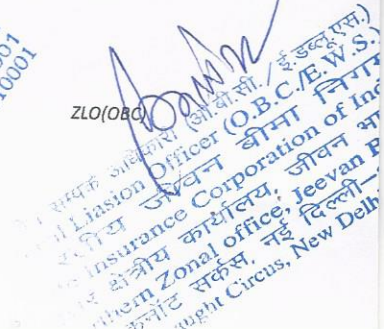 001
10001
ZLO(OBC)
सम्पर्क अधिकारी (ओ.बी.सी./ई.डब्लू.एस.)
Liasion Officer (O.B.C./E.W.S.)
जीवन बीमा निगम
Insurance Corporation of Ind
क्षेत्रीय कार्यालय, जीवन भा
thern Zonal office, Jeevan B
कनॉट सर्कस, नई दिल्ली-
ught Circus, New Delh